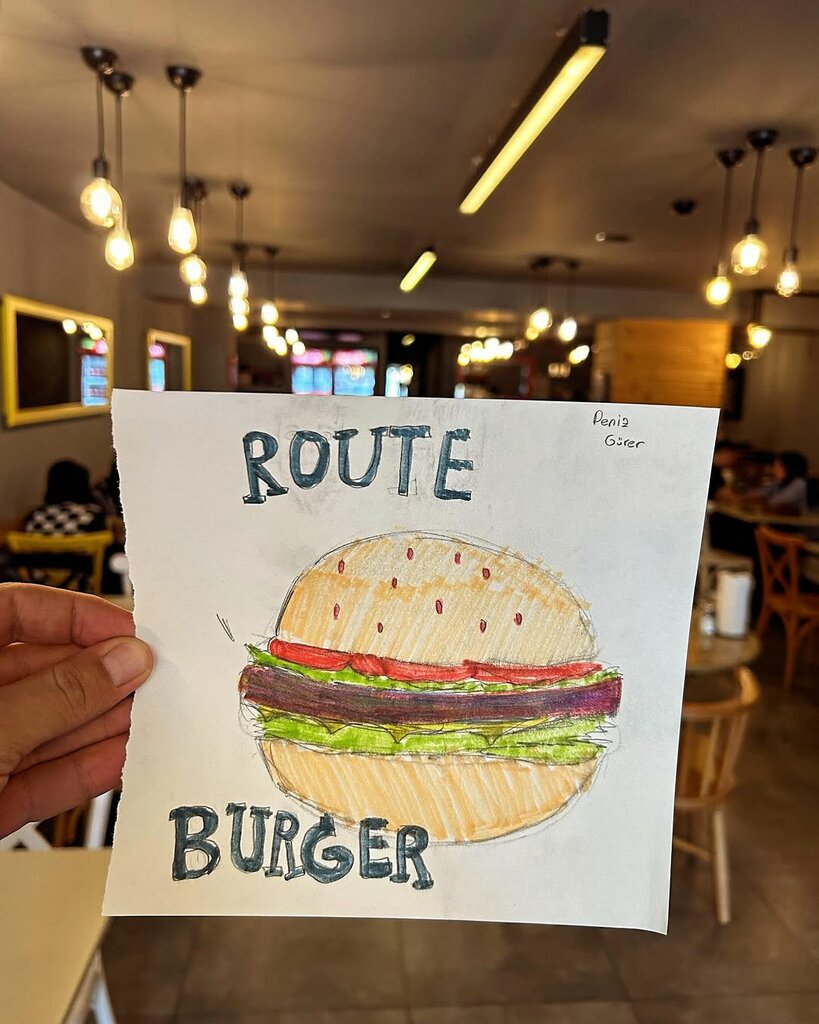 ROUTE
Deniz
Gürer
BURGER